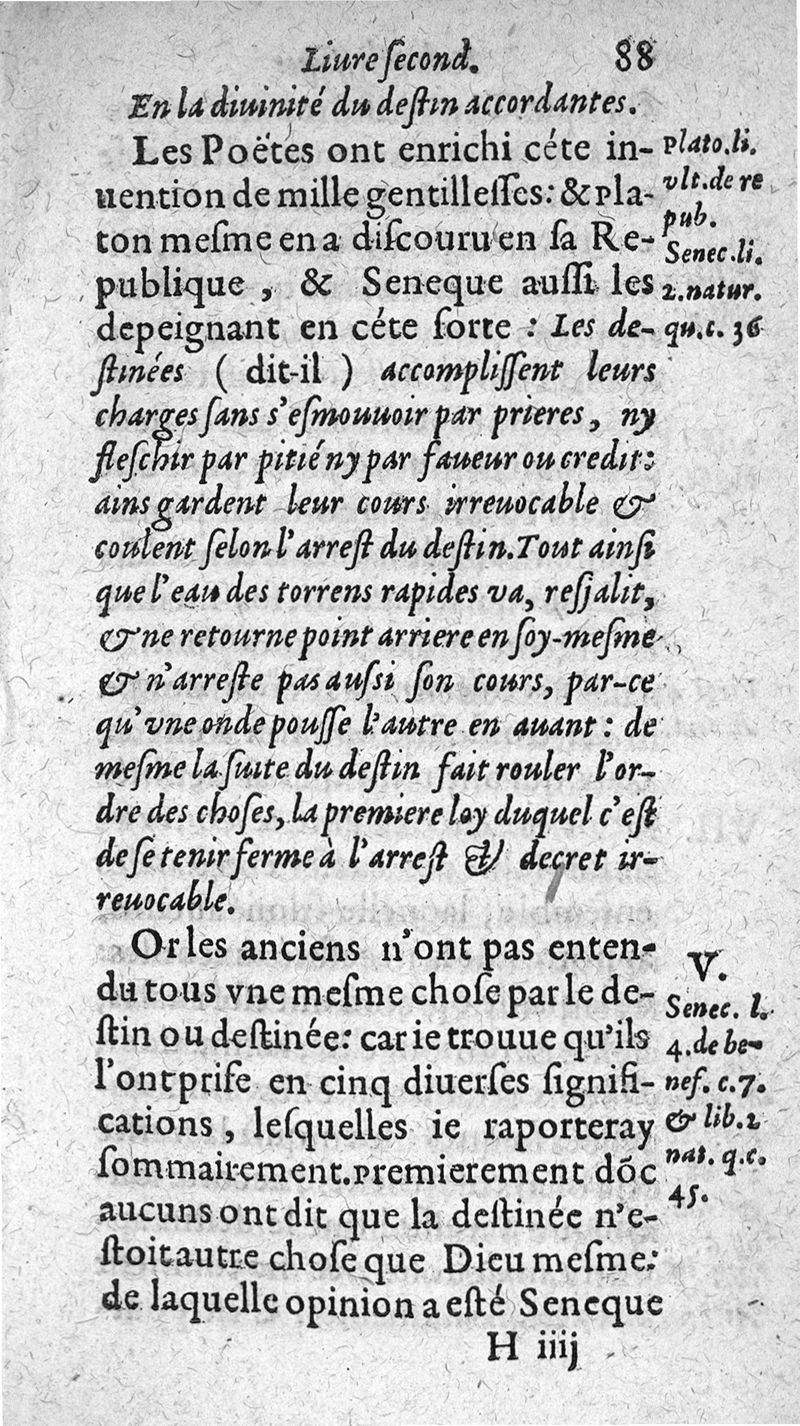 Liure ſecond. 88
En la diuinité du deſtin accordantes.
Les Poëtes ont enrichi céte in-
uention de mille gentilleſſes: & Pla-
ton meſme en a diſcouru en ſa Re-
publique , & Seneque auſſi les
depeignant en céte ſorte : Les de-
ſtinées ( dit-il ) accompliſſent leurs
charges ſans s'eſmouuoir par prieres, ny
fleſchir par pitié ny par faueur ou credit:
ains gardent leur cours irreuocable &
coulent ſelon l'arreſt du deſtin. Tout ainſi
que l'eau des torrens rapides va, reſjalit,
& ne retourne point arriere en ſoy-meſme
& n'arreſte pas auſsi ſon cours, par-ce
qu'vne onde pouſſe l'autre en auant : de
meſme la ſuite du deſtin fait rouler l'or-
dre des choſes, la premiere loy duquel c'eſt
de ſe tenir ferme à l'arreſt & decret ir-
reuocable.
Or les anciens n'ont pas enten-
du tous vne meſme choſe par le de-
ſtin ou deſtinée: car ie trouue qu'ils
l'ont priſe en cinq diuerſes ſignifi-
cations , leſquelles ie raporteray
ſommairement. Premierement dõc
aucuns ont dit que la deſtinée n'e-
ſtoit autre choſe que Dieu meſme:
de laquelle opinion a eſté Seneque
H iiij
Plato. li.
vlt. de re
pub.
Senec. li.
2. natur.
qu. c. 36
V.
Senec. l.
4. de be-
nef. c. 7.
& lib. 2
nat. q. c.
45.